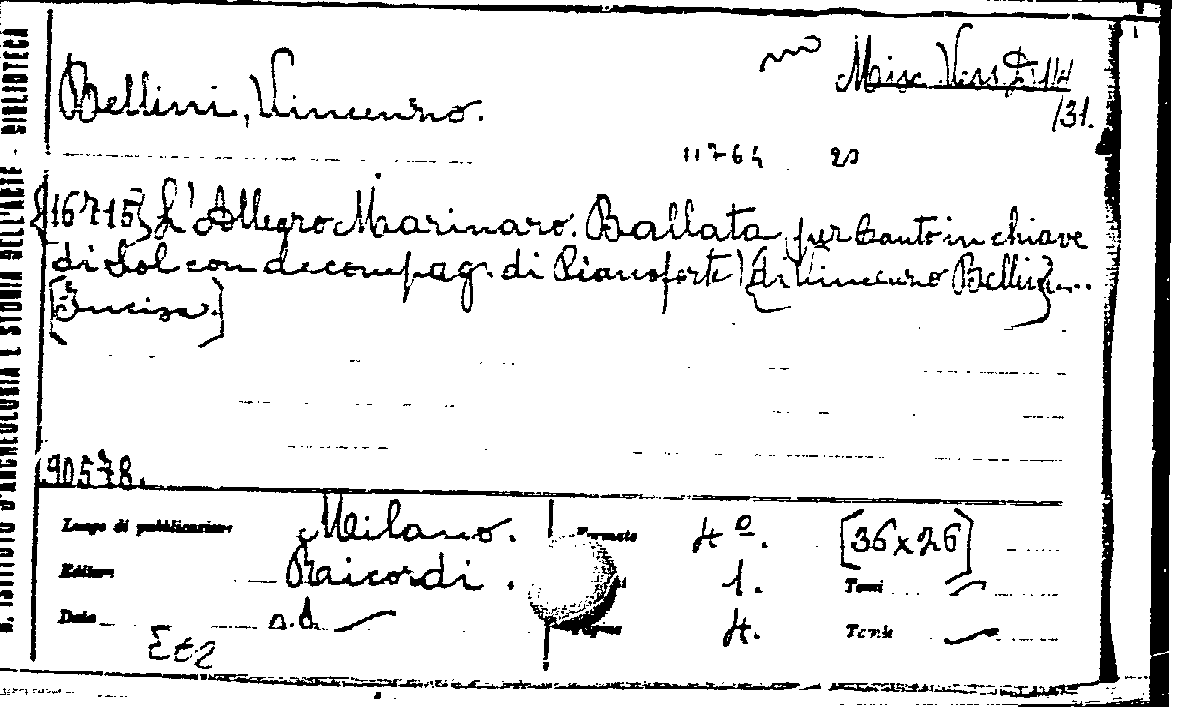 R. ISTITUTO D'ARCHEOLOGIA E STORIA DELL'ARTE - BIBLIOTECA
Misc. Vess.
/31.
Bellini, Vincenzo.
11764 20
{16715} L'Allegro Marinaro. Ballata per Canto in chiave
di Sol con accompag. di Pianoforte) {di Vincenzo Bellini...}
[Incisa.]
90578.
Luogo di pubblicazione Milano. Formato 4º. [36x26]
Editore Raicordi. 1. Tomi
Data s.d. Pagine 4. Tavole